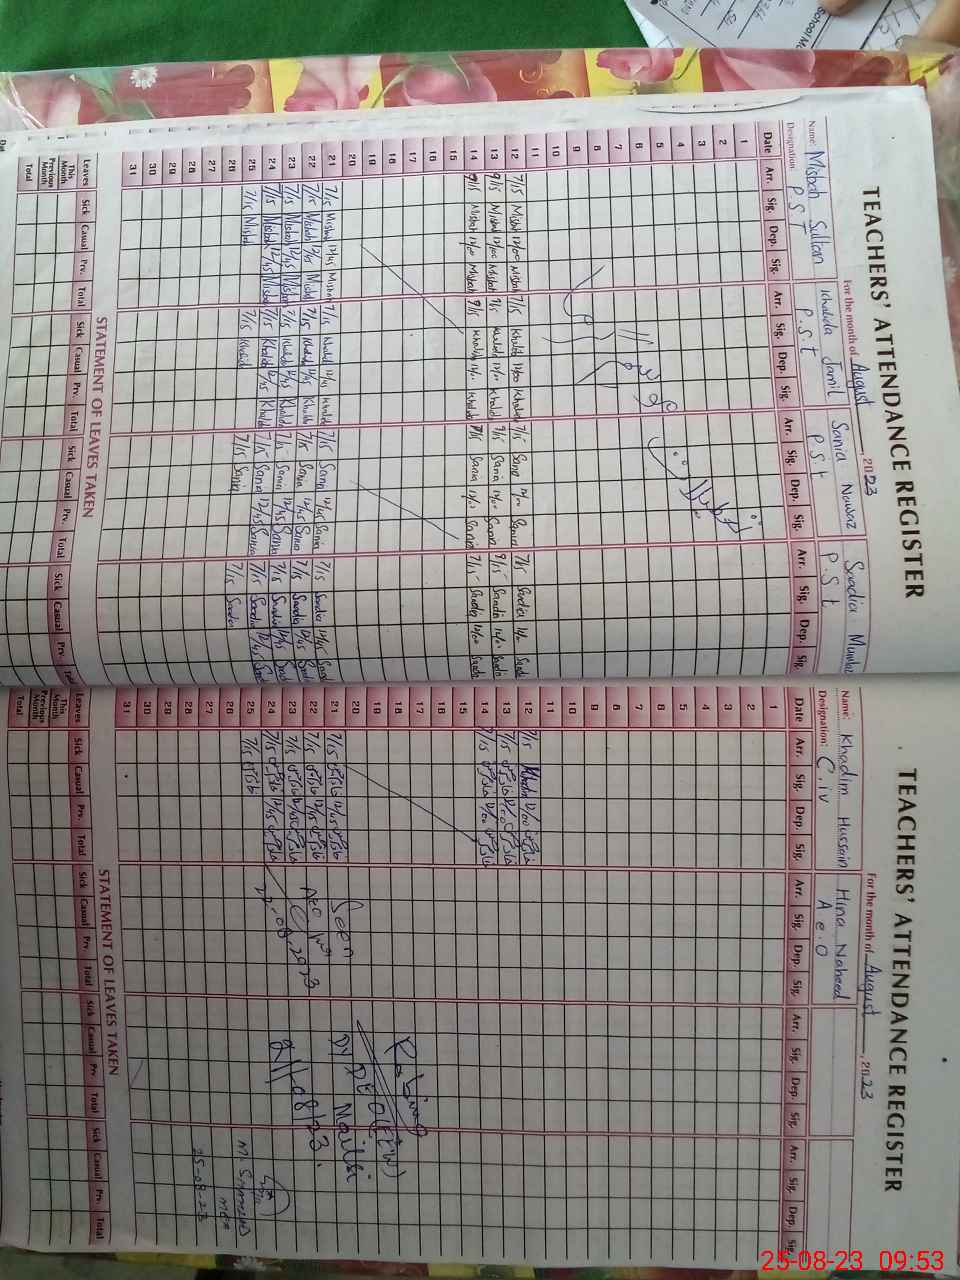 TEACHERS' ATTENDANCE REGISTER
For the month of August, 2023
Name: Misbah Sultan Khalida Jamil Sania Nawaz Saadia Mumtaz
Designation: P S T P.S.t P.S.t P.St
Date Arr. Sig. Dep. Sig. Arr. Sig. Dep. Sig. Arr. Sig. Dep. Sig. Arr. Sig. Dep. Sig.
1
2
3
4
5
6
7
8
9
10
11
12 7/15 Misbah 12/00 Misbah 7/15 Khalida 12/00 Khalida 7/15 Sania 12/00 Sania 7/15 Saadia 12/00 Saadia
13 9/15 Misbah 12/00 Misbah 9/15 Khalida 12/00 Khalida 9/15 Sania 12/00 Sania 9/15 Saadia 12/00 Saadia
14 9/15 Misbah 12/00 Misbah 9/15 Khalida 12/00 Khalida 7/15 Sania 12/00 Sania 7/15 Saadia 12/00 Saadia
15
16
17
18
19
20
21 7/15 Misbah 12/45 Misbah 7/15 Khalida 12/45 Khalida 7/15 Sania 12/45 Sania 7/15 Saadia 12/45 Saadia
22 7/15 Misbah 12/45 Misbah 7/15 Khalida 12/45 Khalida 7/15 Sania 12/45 Sania 7/15 Saadia 12/45 Saadia
23 7/15 Misbah 12/45 Misbah 7/15 Khalida 12/45 Khalida 7/15 Sania 12/45 Sania 7/15 Saadia 12/45 Saadia
24 7/15 Misbah 12/45 Misbah 7/15 Khalida 12/45 Khalida 7/15 Sania 12/45 Sania 7/15 Saadia 12/45 Saadia
25 7/15 Misbah 7/15 Khalida 7/15 Sania 7/15 Saadia
26
27
28
29
30
31
STATEMENT OF LEAVES TAKEN
Leaves Sick Casual Prv. Total Sick Casual Prv. Total Sick Casual Prv. Total Sick Casual Prv. Total
This Month
Previous Month
Total
TEACHERS' ATTENDANCE REGISTER
For the month of August, 2023
Name: Khadim Hussain Hina Naheed
Designation: C.iv A e.O
Date Arr. Sig. Dep. Sig. Arr. Sig. Dep. Sig. Arr. Sig. Dep. Sig. Arr. Sig. Dep. Sig.
1
2
3
4
5
6
7
8
9
10
11
12 7/15 Khadim 12/00
13 7/15 12/00
14 7/15 12/00
15
16
17
18
19
20
21 7/15 12/45
22 7/15 12/45
23 7/15 12/45
24 7/15 12/45
25 7/15
26
27
28
29
30
31
Seen
AEO
22.08.2023
Dy DEO (EEW)
Mailsi
21/08/23.
MEA
25-08-23
STATEMENT OF LEAVES TAKEN
Leaves Sick Casual Prv. Total Sick Casual Prv. Total Sick Casual Prv. Total Sick Casual Prv. Total
This Month
Previous Month
Total
25-08-23 09:53